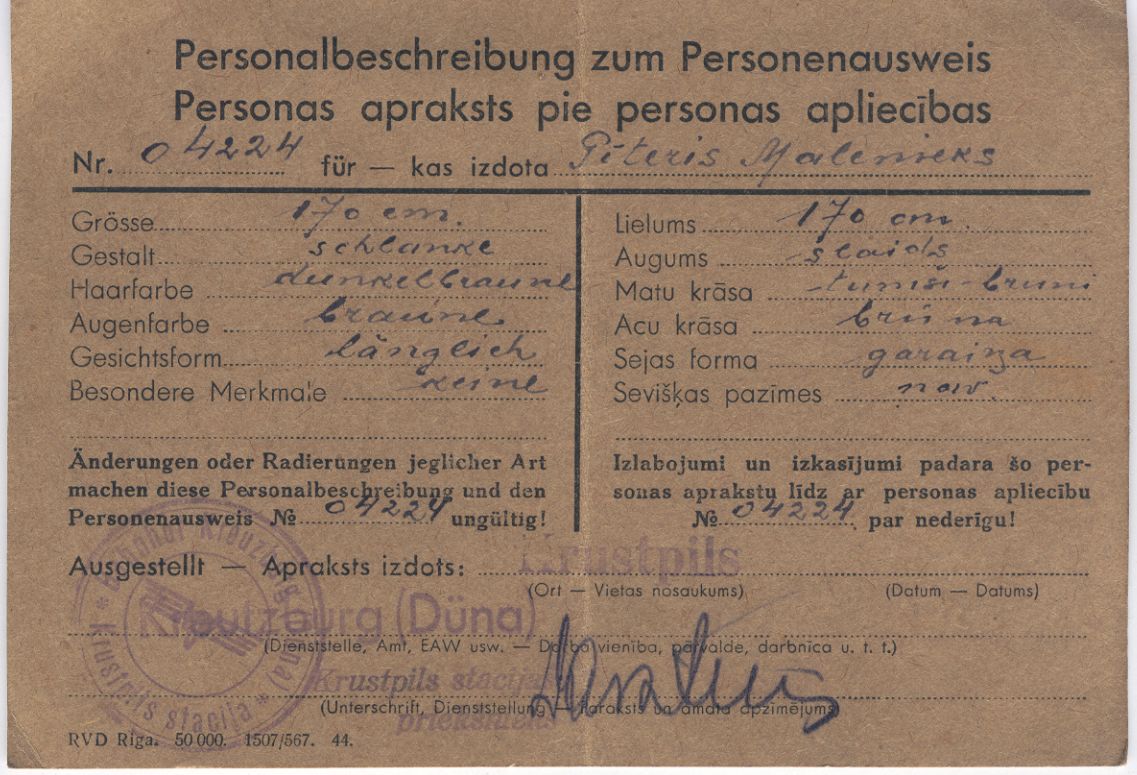 Personalbeschreibung zum Personenausweis
Personas apraksts pie personas apliecības
Nr. 04224 für — kas izdota Pīteris Malenieks
Grösse 170 cm.
Gestalt schlanke
Haarfarbe dunkelbraune
Augenfarbe braune
Gesichtsform länglich
Besondere Merkmale keine
Änderungen oder Radierungen jeglicher Art
machen diese Personalbeschreibung und den
Personenausweis № 04224 ungültig!
Lielums 170 cm.
Augums slaids
Matu krāsa tumši-bruni
Acu krāsa brūna
Sejas forma garaiņa
Sevišķas pazīmes nav.
Izlabojumi un izkasījumi padara šo per-
sonas aprakstu līdz ar personas apliecību
№ 04224 par nederīgu!
Ausgestellt — Apraksts izdots: Krustpils
(Ort — Vietas nosaukums) (Datum — Datums)
Kreutzburg (Düna)
(Dienststelle, Amt, EAW usw. — Darba vienība, pārvalde, darbnīca u. t. t.)
Krustpils stacijas
priekšnieks
(Unterschrift, Dienststellung — Paraksts un amata apzīmējums)
Bahnhof Kreuzburg (Düna)
* Krustpils stacija *
RVD Riga. 50 000. 1507/567. 44.